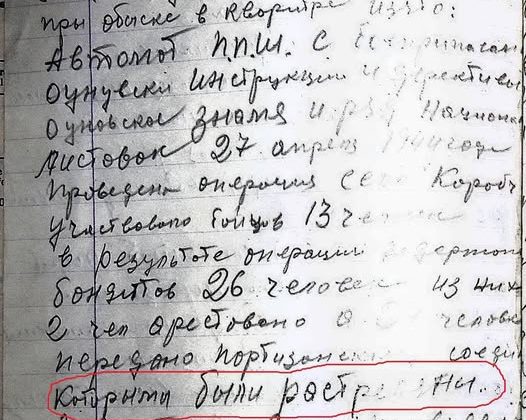 при обыске в квартире изято:
Автомат П.П.Ш. с боеприпасам
оунувски инструкции и директивы
Оуновское знамя и ряд национал
листовок 27 апреля 1944 года
проведена операция село Короб
участвовало бойцов 13 человек
в результате операции задержано
бондитов 26 человек из них
2 чел арестовано а человек
передано портизанским соеди
которыми были растреляны.